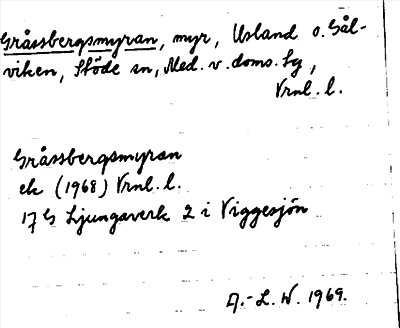 Gråssbergsmyran, myr, Usland o. Gål-
viken, Stöde sn, Med. v. doms. tg,
Vrnl. l.
Gråssbergsmyran
ek (1968) Vrnl. l.
17 G Ljungaverk 2 i Viggesjön
A.-L. W. 1969.